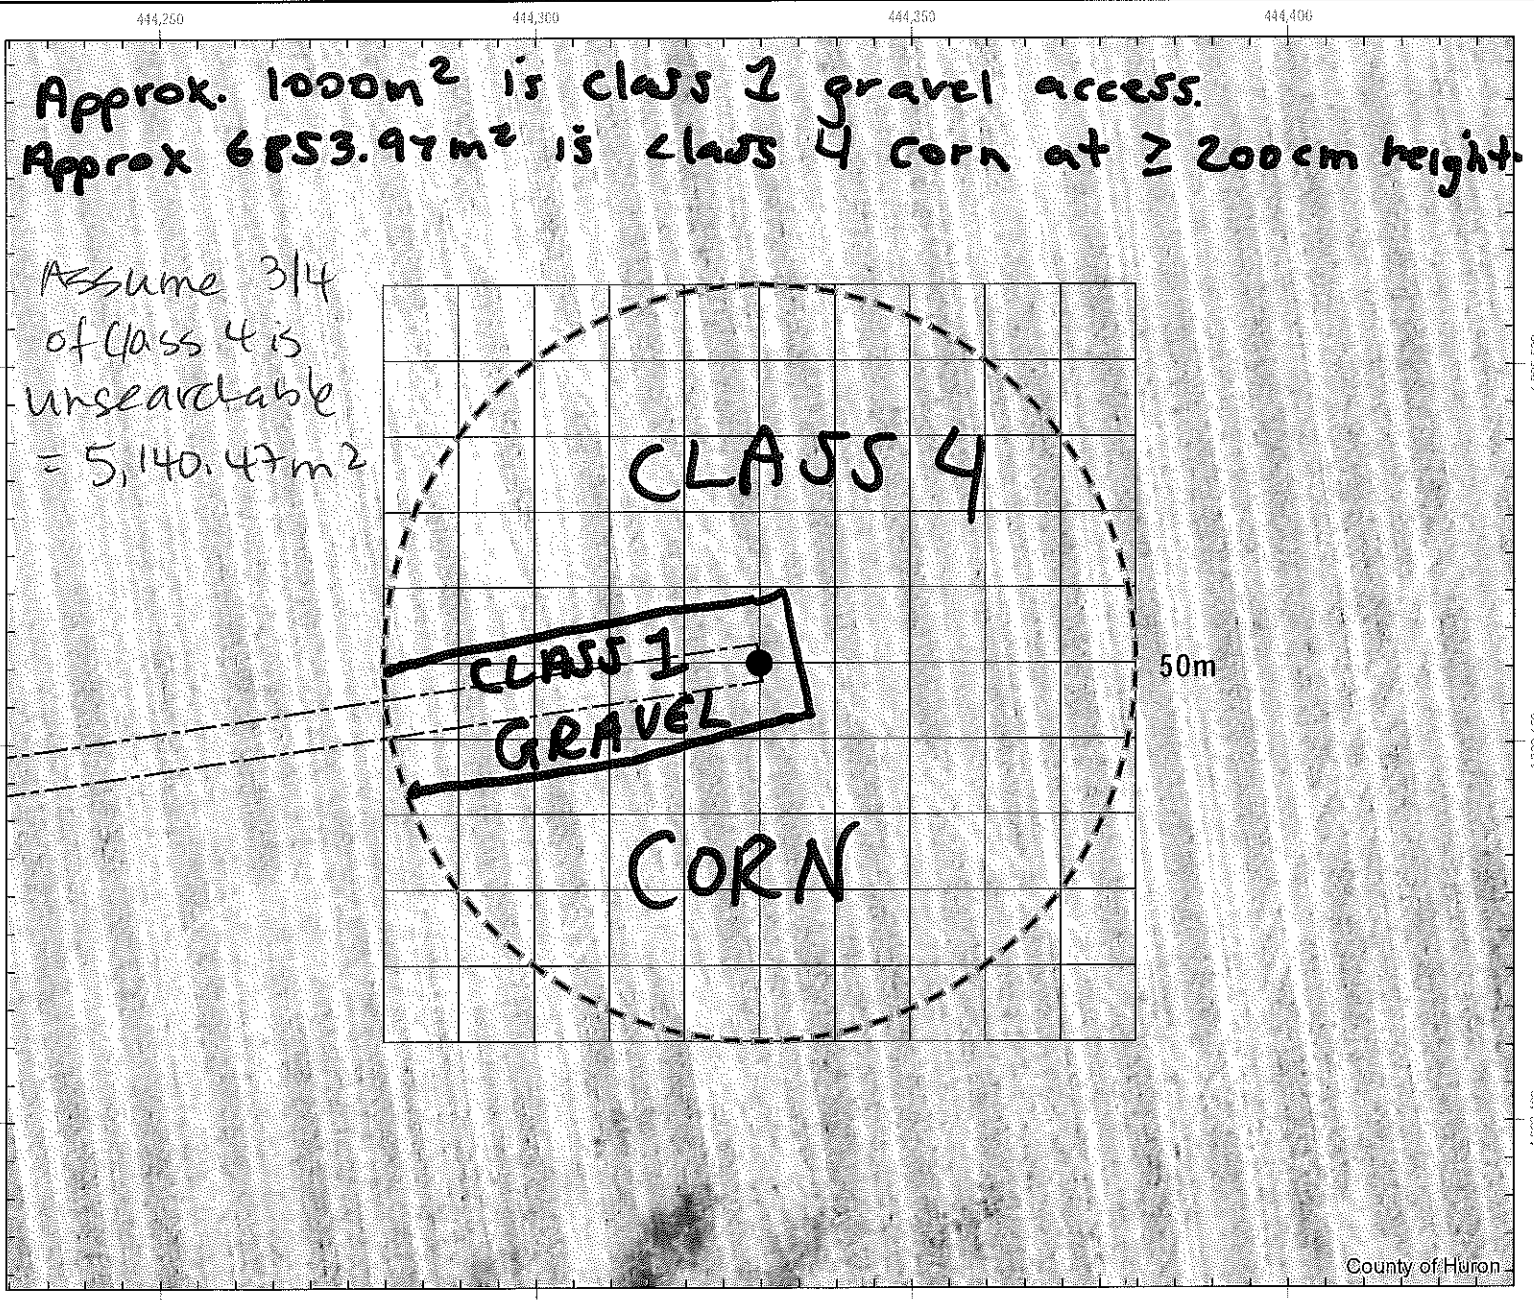 444,250 444,300 444,350 444,400
Approx. 1000m² is class 1 gravel access.
Approx 6853.97m² is class 4 corn at ≥ 200cm height.
Assume 3/4
of Class 4 is
unsearchable
= 5,140.47m²
CLASS 4
CLASS 1
GRAVEL
50m
CORN
County of Huron